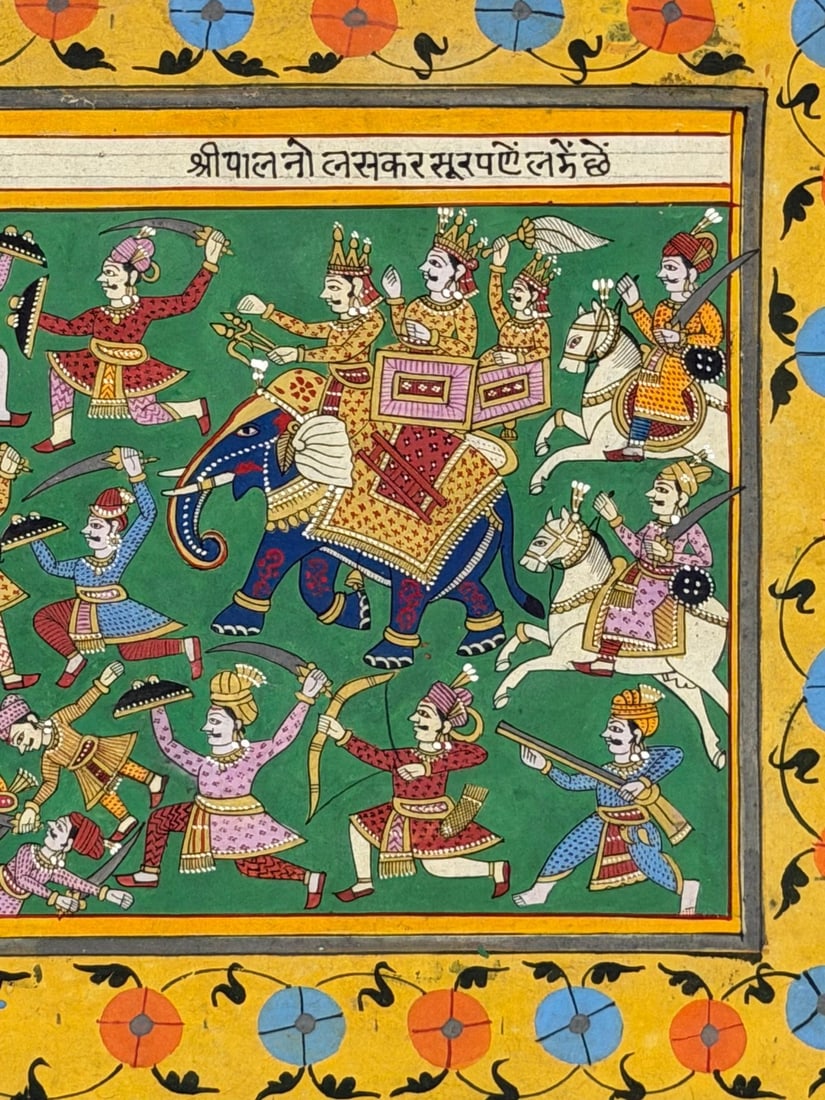 श्रीपाल नो लसकर सूरपणें लडें छें